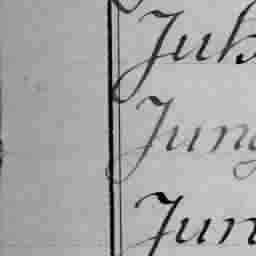 Juh
Jung
Jun